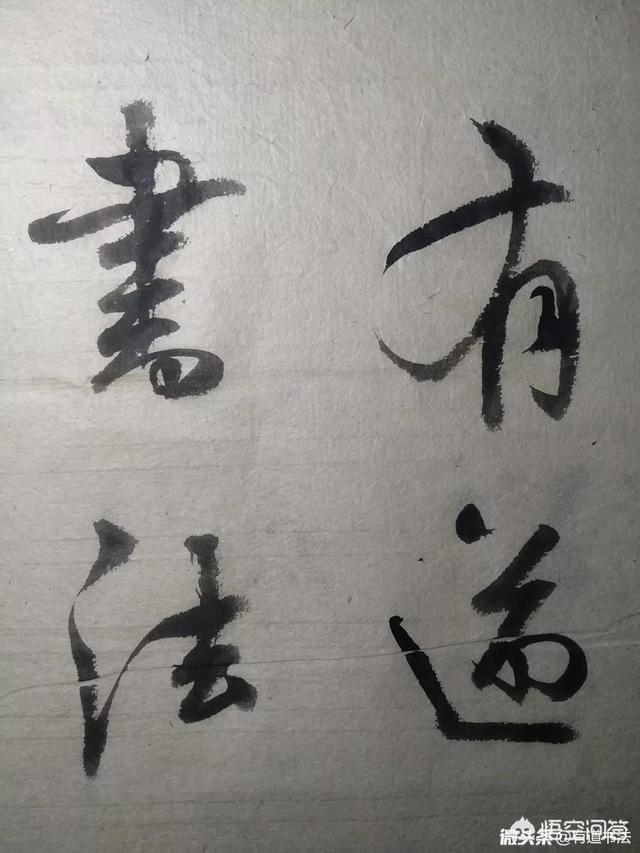 有道
書法
悟空问答
微头条@有道书法